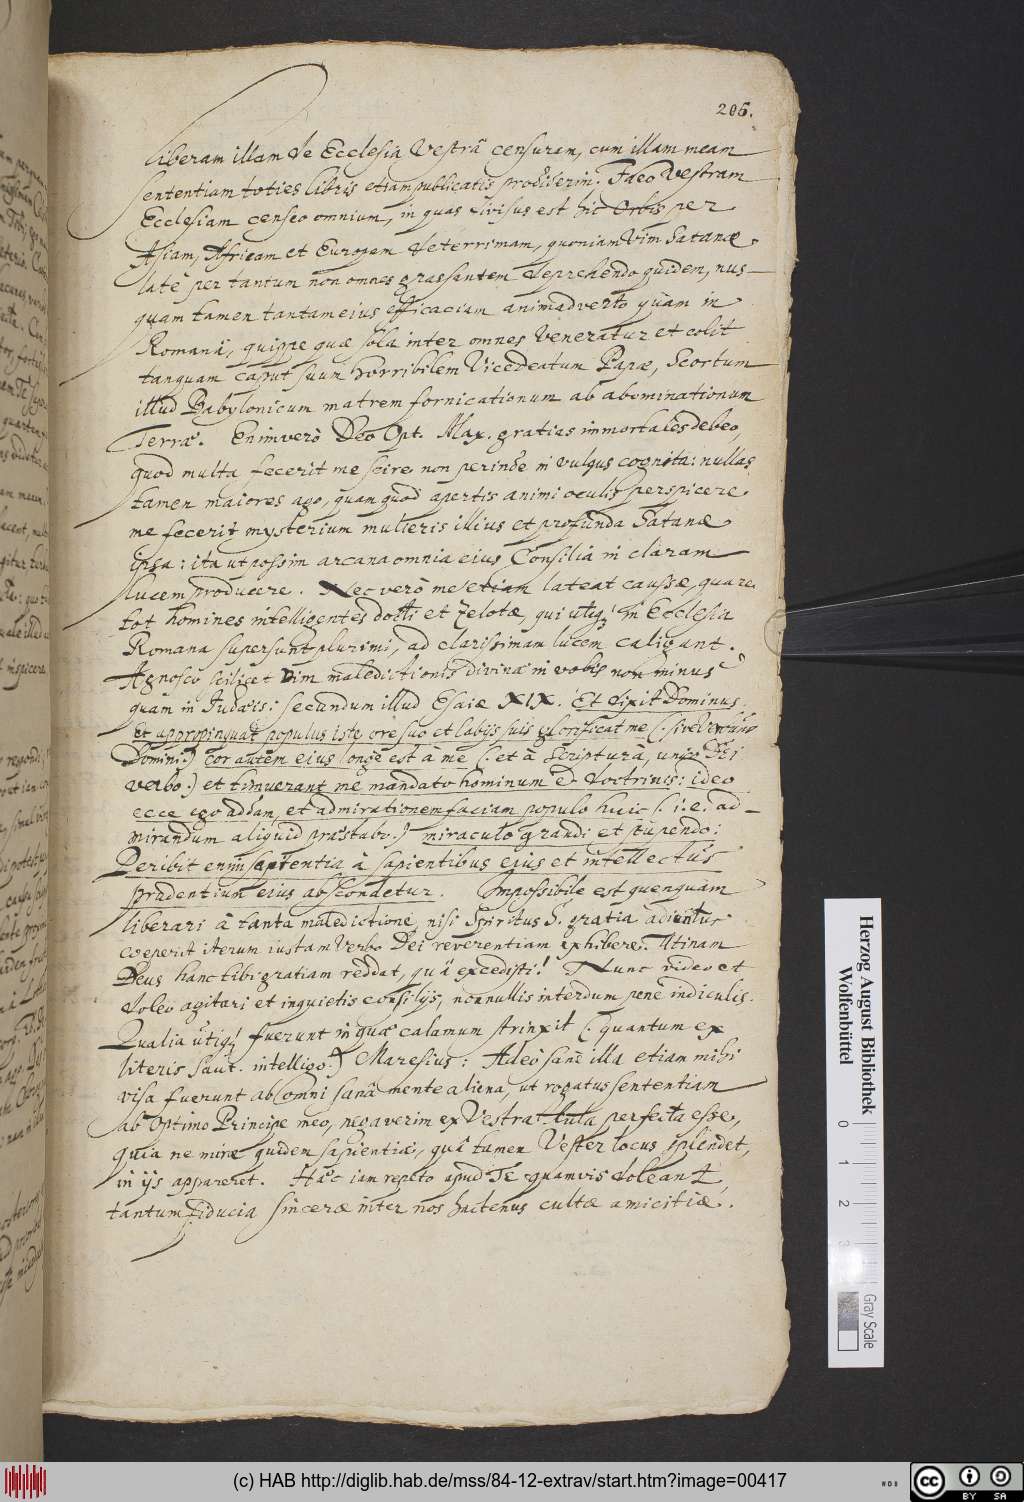 206.
liberam illam de Ecclesia Vestrâ censuram, cum illam meam
sententiam toties libris etiam publicatis prodiderim. Ideo Vestram
Ecclesiam censeo omnium, in quas divisus est hic Orbis per
Asiam, Africam et Europam deterrimam, quoniam Vim Satanæ
latè per tantum non omnes grassantem deprehendo quidem, nus-
quam tamen tantam eius efficaciam animadverto quàm in
Romanâ, quippe quæ sola inter omnes veneratur et colit
tanquam caput suum horribilem Vicedeatum Papæ, Scortum
illud Babylonicum matrem fornicationum ab abominationum
Terræ. Enimverò Deo Opt. Max. gratias immortales debeo,
quod multa fecerit me scire non perinde in vulgus cognita: nullas
tamen maiores ago, quàm quod apertis animi oculis perspicere
me fecerit mysterium mulieris illius et profunda Satanæ
ipsa: ita ut possim arcana omnia eius Consilia in claram
lucem producere. Nec verò me etiam lateat caussæ, quare
tot homines intelligentes docti et zelotæ, qui utiq; in Ecclesia
Romana supersunt plurimi, ad clarissimam lucem caligant.
Agnosco scilicet vim maledictionis divinæ in vobis non minus
quam in Judæis: secundum illud Esaiæ XIX. Et dixit Dominus,
et appropinquat populus iste ore suo et labijs suis glorificat me (: sive
Domini:) cor autem eius longè est à me (: et à Scripturâ, Dei
verbo:) et timuerant me mandato hominum et doctrinis: ideo
ecce ego addam, et admirationem faciam populo huic (: i. e. ad-
mirandum aliquid præstabo:) miraculo grandi et stupendo:
Peribit enim sapientia à sapientibus eius et intellectus
prudentium eius abscondetur. Impossibile est quenquam
liberari à tanta maledictione, nisi Spiritus S. gratia adiutus
coeperit iterum iustam Verbo Dei reverentiam exhibere. Utinam
Deus hanc tibi gratiam reddat, quâ excedisti! Nunc video et
doleo agitari et inquietis consilijs, nonnullis interdum penè indiculis.
Qualia utiq; fuerunt in quæ calamum strinxit (: quantum ex
literis Saut. intelligo:) Maresius: Adeò sanè illa etiam mihi
visa fuerunt ab omni sanâ mente aliena, ut rogatus sententiam
ab Optimo Principe meo, negaverim ex Vestra perfecta esse,
quia ne micæ quidem sapientiæ, quâ tamen Vester locus splendet,
in ijs appareret. Hæc iam repeto apud Te quamvis doleant
tantum fiducia sinceræ inter nos hactenus cultæ amicitiæ.
Herzog August Bibliothek
Wolfenbüttel
0
1
2
3
Gray Scale
(c) HAB http://diglib.hab.de/mss/84-12-extrav/start.htm?image=00417
cc BY SA